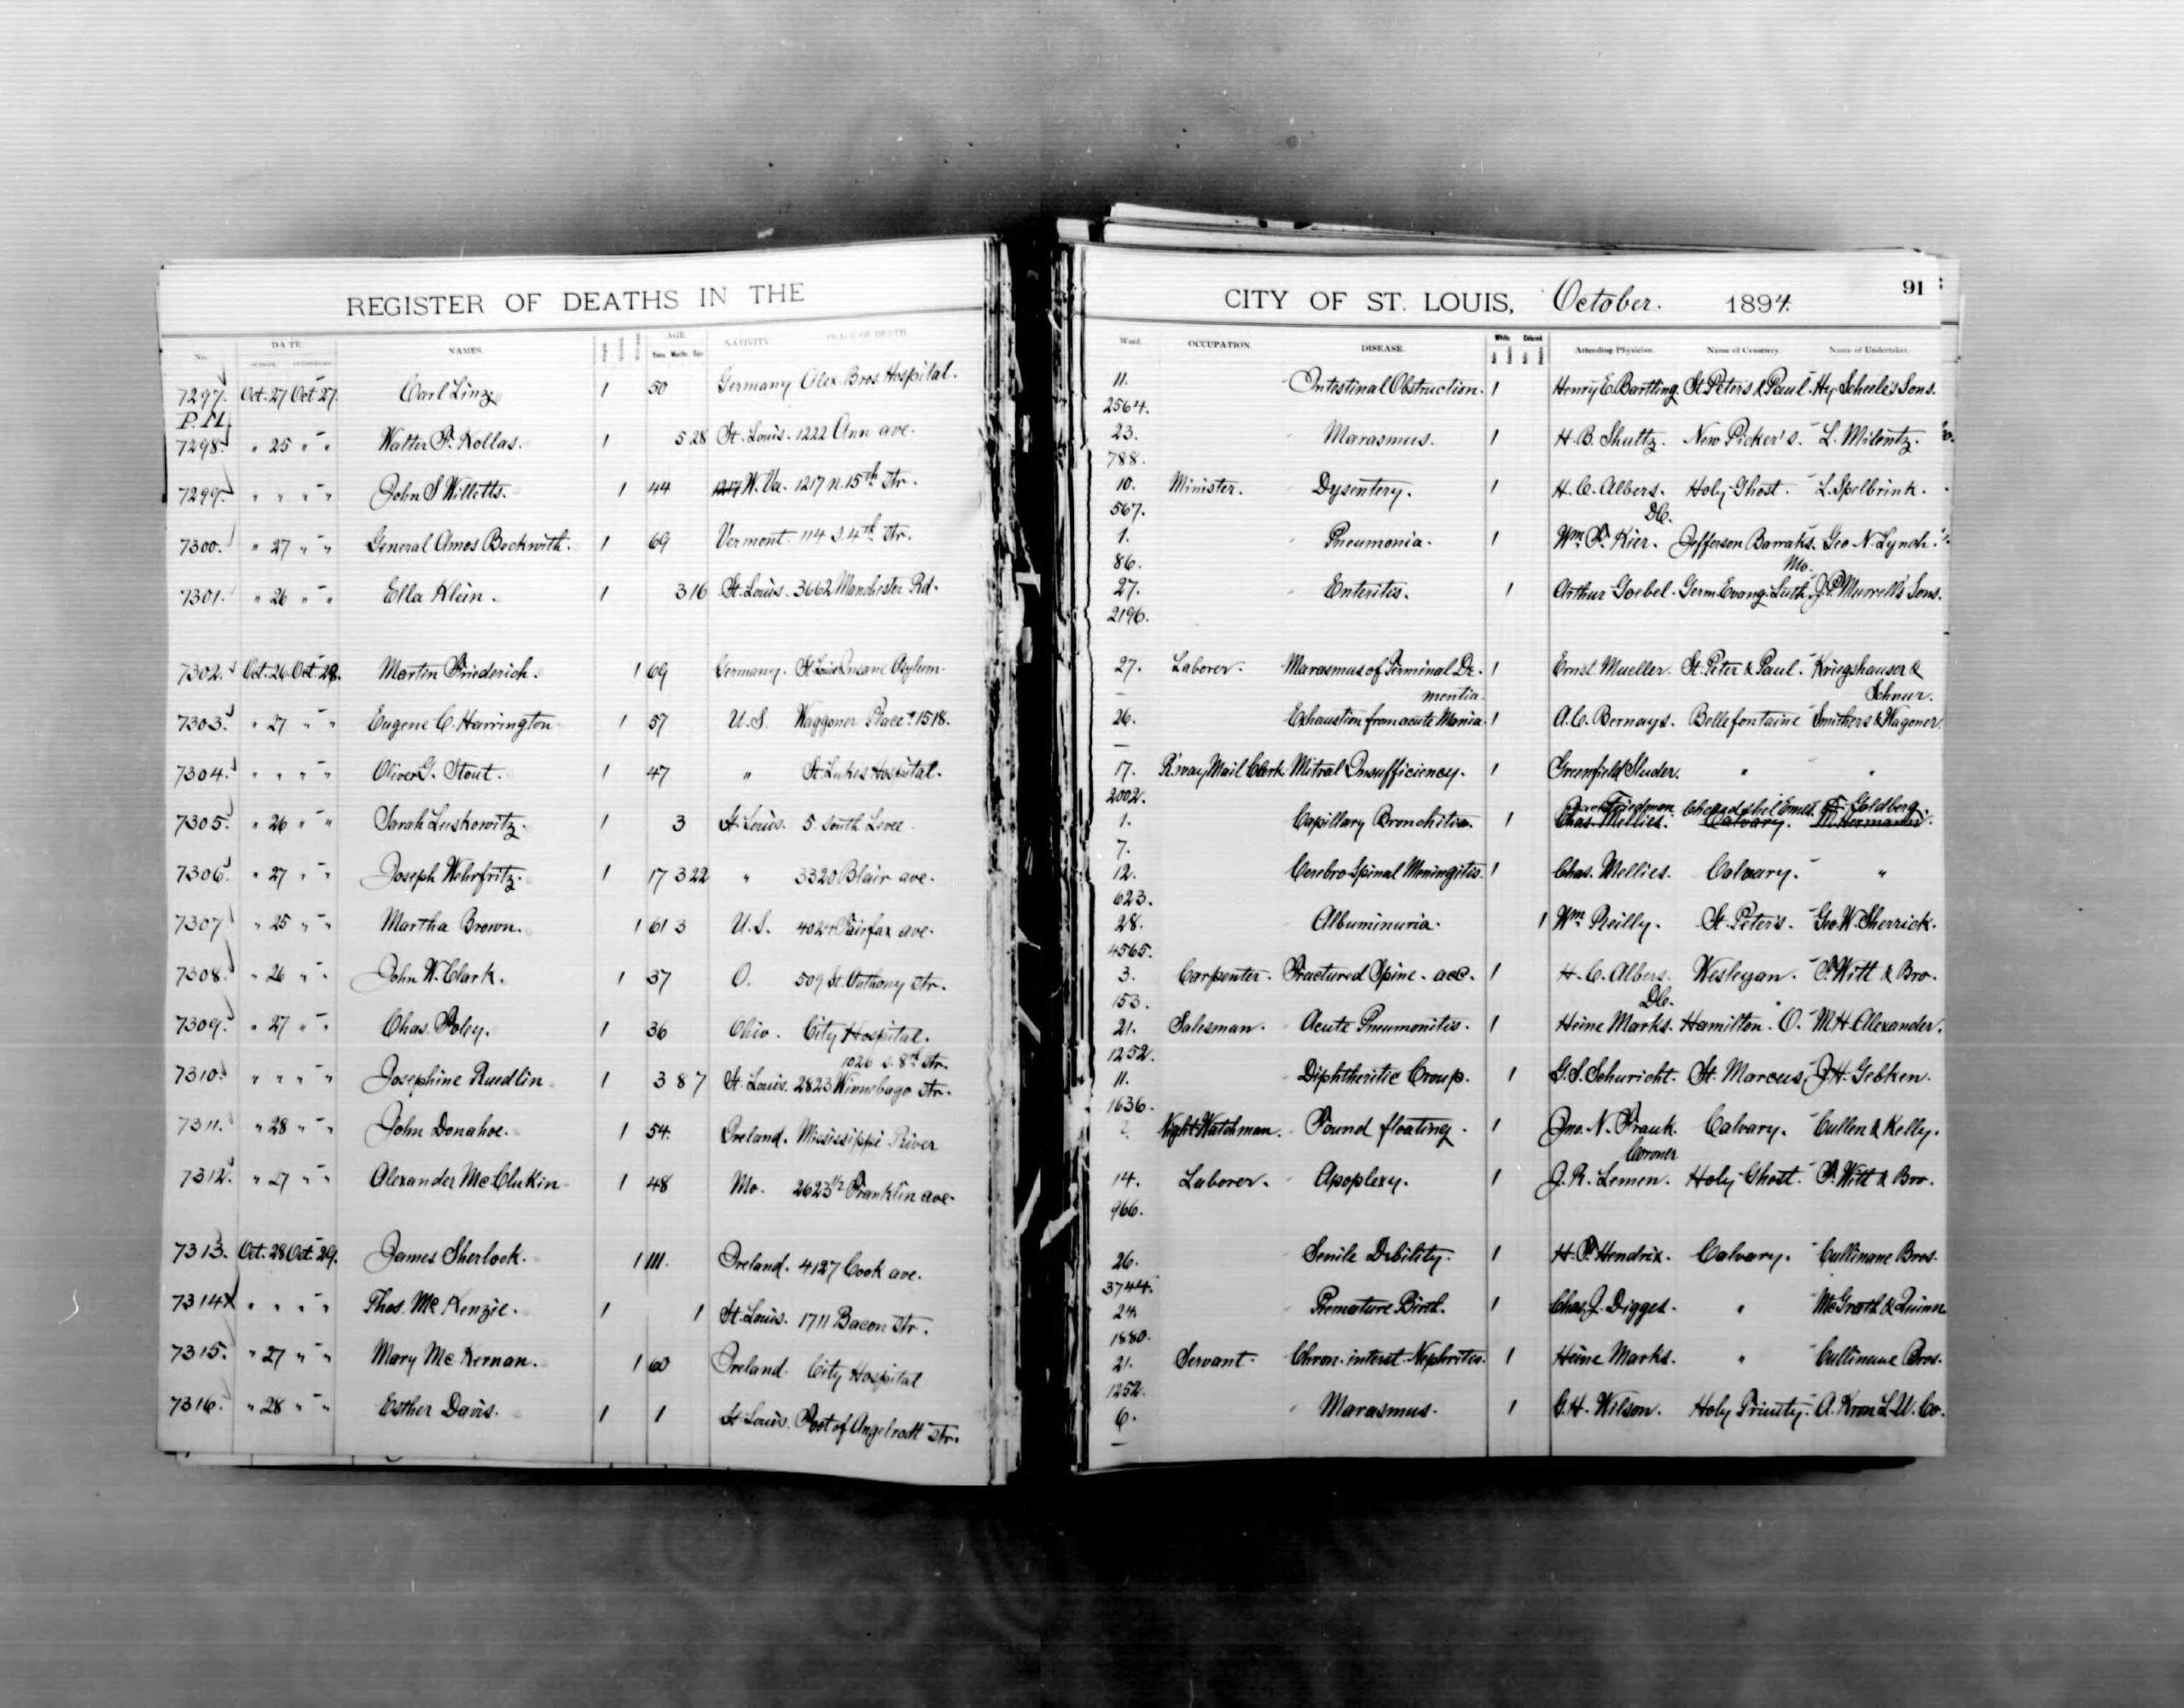 REGISTER OF DEATHS IN THE CITY OF ST. LOUIS, October. 1894. 91
No. DATE. NAMES. AGE. Years Months Days NATIVITY. PLACE OF DEATH. Ward. OCCUPATION. DISEASE. White. Colored. Attending Physician. Name of Cemetery. Name of Undertaker.
7297. Oct. 27 Oct. 27. Carl Linz 1 50 Germany Alex. Bros. Hospital. 11. Intestinal Obstruction. 1 Henry E. Bartling. St. Peter's & Paul. Hy. Scheele's Sons.
P.M. 2564.
7298. " 25 " " Walter F. Kollas. 1 5 28 St. Louis. 1222 Ann ave. 23. Marasmus. 1 H. B. Shuttz. New Picker's. L. Milentz.
788.
7299. " " " " John S. Willetts. 1 44 1217 W. Va. 1217 N. 15th Str. 10. Minister. Dysentery. 1 H. C. Albers. Holy Ghost. L. Spelbrink.
567. DC.
7300. " 27 " " General Amos Beckwith. 1 69 Vermont. 114 S. 4th Str. 1. Pneumonia. 1 Wm. F. Kier. Jefferson Barraks. Geo N. Lynch.
86. Mo.
7301. " 26 " " Ella Klein. 1 3 16 St. Louis. 3662 Manchester Rd. 27. Enteritis. 1 Arthur Goebel. Germ. Evang. Luth. J. P. Murrell's Sons.
2196.
7302. Oct. 26. Oct. 29. Martin Friederich. 1 69 Germany. St. Louis Insane Asylum. 27. Laborer. Marasmus of Terminal De- 1 Ernst Mueller. St. Peter & Paul. Kriegshauser &
– mentia. Schnur.
7303. " 27 " " Eugene C. Harrington 1 57 U.S. Waggoner Place 1518. 26. Exhaustion from acute Mania. 1 A. C. Bernays. Bellefontaine Smithers & Wagoner.
–
7304. " " " " Oliver G. Stout. 1 47 " St. Lukes Hospital. 17. R.way Mail Clerk Mitral Insufficiency. 1 Greenfield Sluder. " "
2002. Friedman. Chesed shel Emes. Goldberg.
7305. " 26 " " Sarah Leskowitz. 1 3 St. Louis. 5 South Levee 1. Capillary Bronchitis. 1 Chas. Mellies. Calvary. M. Hermann.
7.
7306. " 27 " " Joseph Wehrfritz. 1 17 3 22 " 3320 Blair ave. 12. Cerebro Spinal Meningitis. 1 Chas. Mellies. Calvary. "
623.
7307 " 25 " " Martha Brown. 1 61 3 U.S. 4024 Fairfax ave. 28. Albuminuria. 1 Wm. Reilly. St. Peter's. Geo. W. Sherrick.
4565.
7308. " 26 " " John W. Clark. 1 37 O. 509 St. Anthony Str. 3. Carpenter. Fractured Spine. acc. 1 H. C. Albers. Wesleyan. P. Witt & Bro.
153. DC.
7309. " 27 " " Chas. Poley. 1 36 Ohio. City Hospital. 21. Salesman. Acute Pneumonitis. 1 Heine Marks. Hamilton. O. M. H. Alexander.
1026 S. 8th Str. 1252.
7310. " " " " Josephine Ruedlin 1 3 8 7 St. Louis. 2823 Winnebago Str. 11. Diphtheritic Croup. 1 G. S. Schuricht. St. Marcus. J. H. Gebken.
1636.
7311. " 28 " " John Donahoe. 1 54. Ireland. Mississippi River Night Watchman. Found floating. 1 Jno. N. Frank. Calvary. Cullen & Kelly.
Coroner
7312. " 27 " " Alexander McClukin 1 48 Mo. 2623 1/2 Franklin ave. 14. Laborer. Apoplexy. 1 J. R. Lemen. Holy Ghost. P. Witt & Bro.
966.
7313. Oct. 28 Oct. 29. James Sherlock. 1 111. Ireland. 4127 Cook ave. 26. Senile Debility. 1 H. P. Hendrix. Calvary. Cullinane Bros.
3744.
7314 " " " " Thos. McKenzie. 1 1 St. Louis. 1711 Bacon Str. 24. Premature Birth. 1 Chas. J. Digges. " McGrath & Quinn
1880.
7315. " 27 " " Mary McKernan. 1 60 Ireland. City Hospital 21. Servant. Chron. interst. Nephritis. 1 Heine Marks. " Cullinane Bros.
1252.
7316. " 28 " " Esther Davis. 1 1 St. Louis. Foot of Angelrodt Str. 6. Marasmus. 1 G. H. Wilson. Holy Trinity. A. Kron L. U. Co.
–